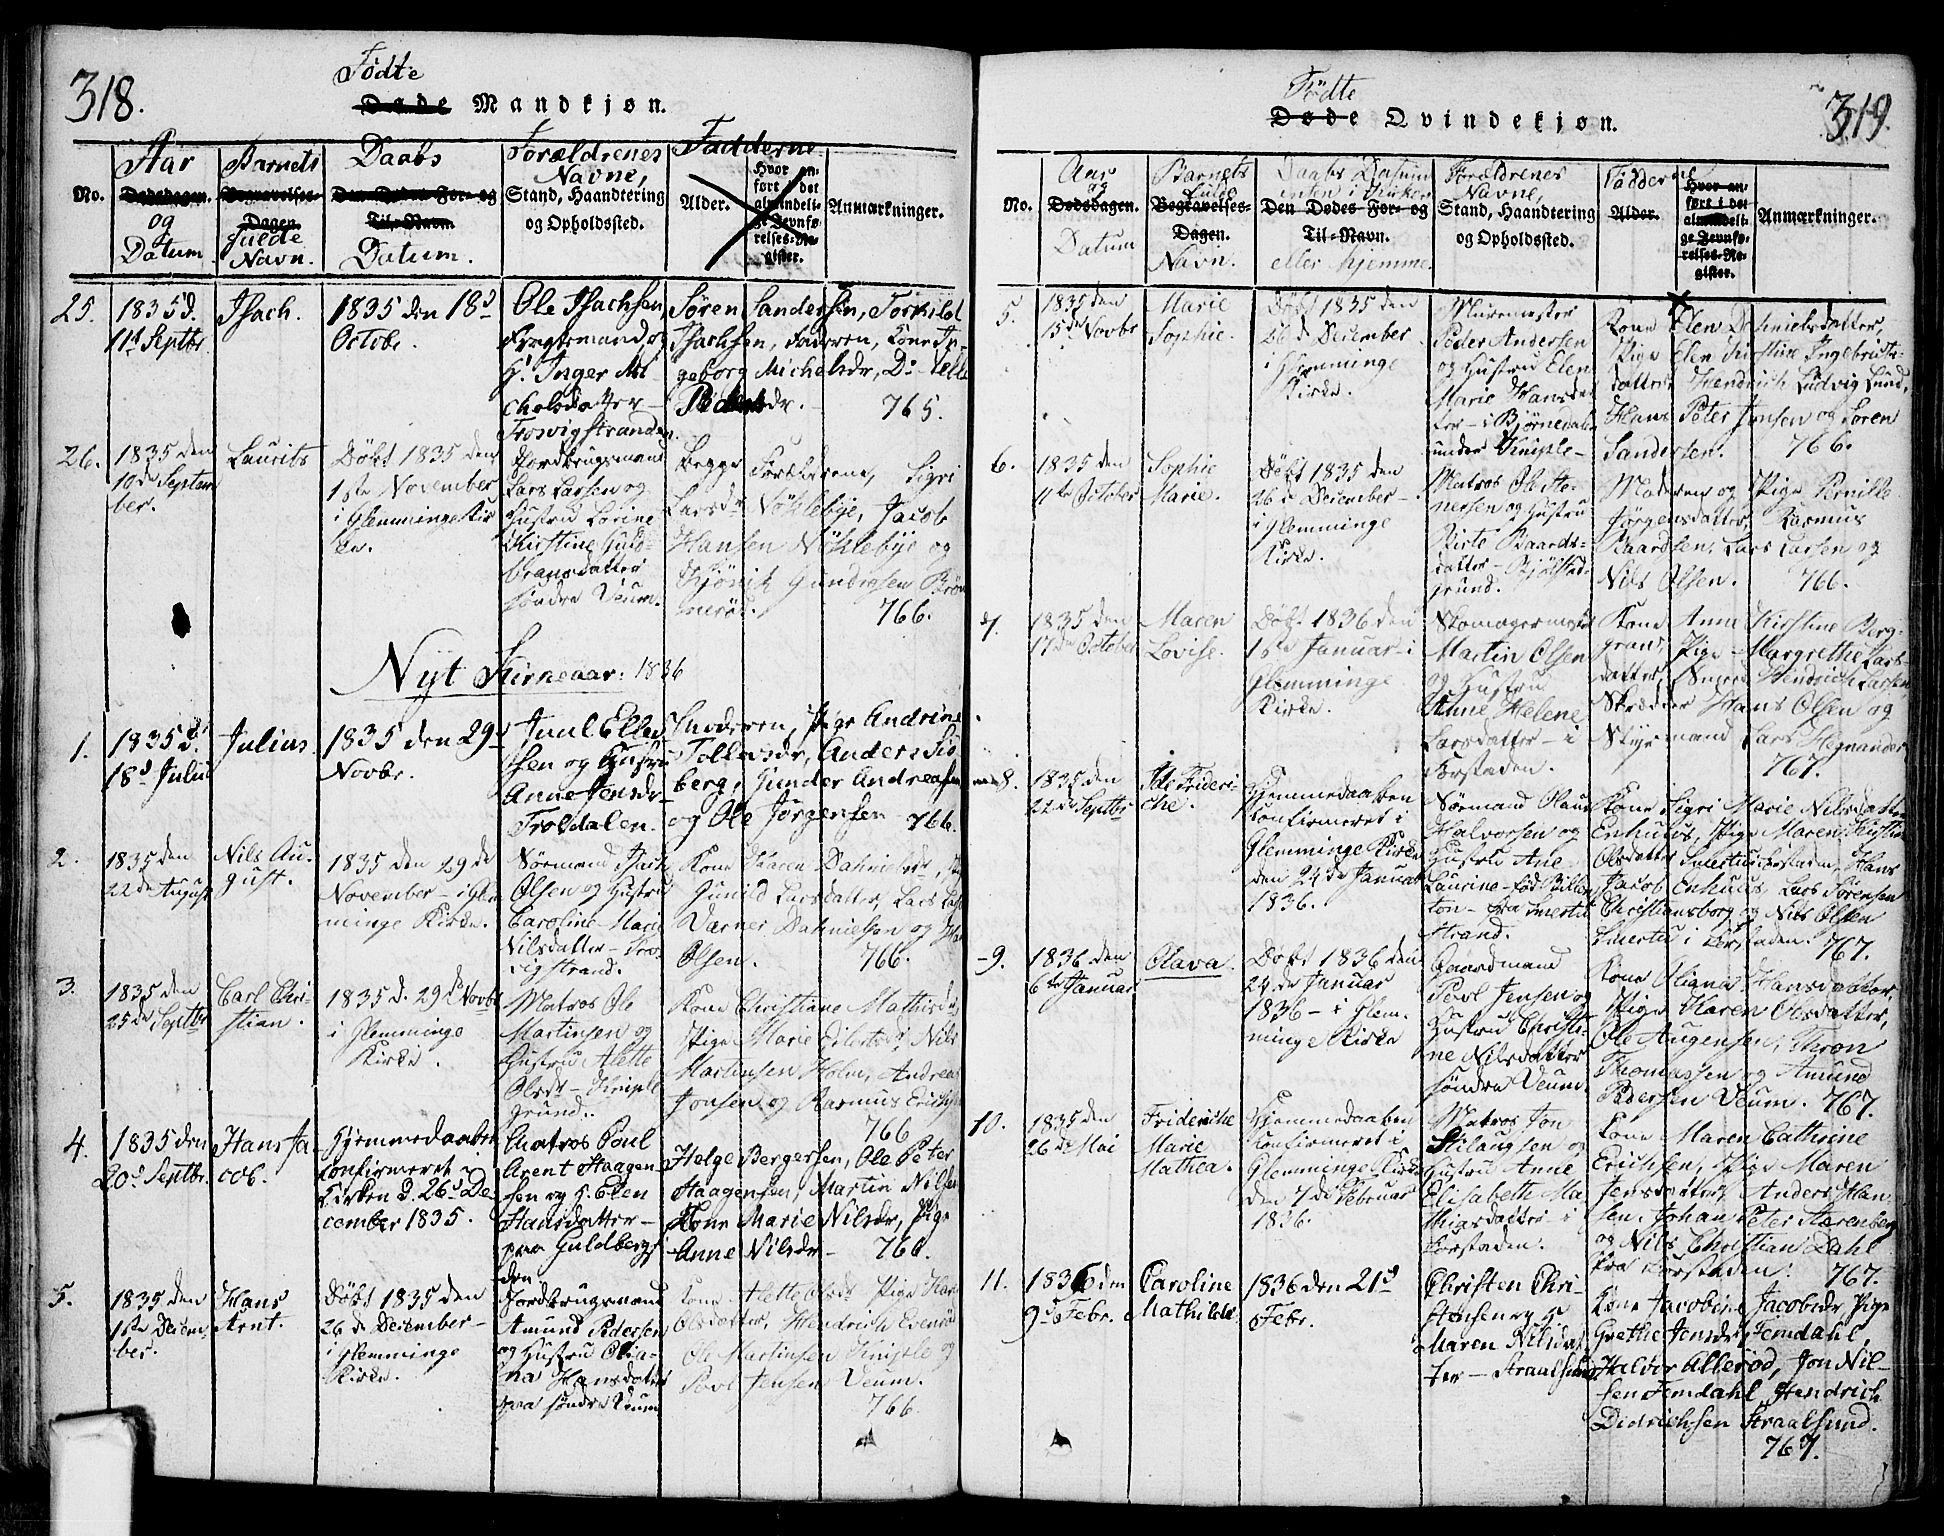 318.
Fødte
Døde Mandkjøn.
No.
Aar
Dødsdagen.
og
Datum.
Barnets
Begravelses-
Dagen.
fulde
Navn.
Daabs
Den Dødes For- og
Til-Navn.
Datum.
Forældrenes
Navne,
Stand, Haandtering
og Opholdssted.
Fadderne
Alder.
Hvor an-
ført i det
almindeli-
ge Jevnfø-
relses-Re-
gister.
Anmærkninger.
25.
1835 d.
11te Septbr.
Isach.
1835 den 18d
Octobr.
Ole Isachsen,
Fragtemand og
H. Inger Mi-
chelsdatter -
Trosvigstranden.
Søren Sandersen, Torkild
Isachsen, Faderen, Kone In-
geborg Michelsdr, Do
765.
26.
1835 den
10de Septem
ber.
Laurits
Døbt 1835 den
1ste November
i Glemminge Kir
ke.
Jordbrugsmand
Lars Larsen og
Hustrue Lorine
Kirstine Guld-
brandsdatter
søndre Veum.
Begge Forældrene, Sigri
Larsdr Nøkleby, Jacob
Hansen Nøkleby og
Gundersen
766.
Nyt Kirkeaar: 1836
1.
1835 d.
18d Julii
Julius.
1835 den 29d
Novbr.
Juul Elle
sen og Hustru
Anne Jensdr -
Troldalen.
Moderen, Pige Andrine
Tollefsdr, Anders Sio
berg, Gunder Andreasen
og Ole Jørgensen
766.
2.
1835 den
22de August
Nils Au-
gust.
1835 den 29de
November - i Glem
minge Kirke.
Sømand Isach
Olsen og Hustru
Caroline Marie
Nilsdatter - Tros
vigstrand.
Kone Maren Dahnielsdr,
Gunild Larsdatter, Lars
Varner Dahnielsen og
Olsen.
766.
3.
1835 den
25de Septbr
Carl Chri-
stian.
1835 d. 29de Novbr
i Glemminge
Kirke.
Matros Ole
Martinsen og
Hustrue Alette
Olsdr - Kniple
grund.
Kone Christiane Mathisdr,
Pige Marie Eilertsdr, Nils
Martinsen Holm, Andreas
Jonsen og Rasmus Erichsen
766
4.
1835 den
20d Septbr.
Hans Ja
cob.
Hjemmedaabens
Confirmeret i
Kirken d. 26d De-
cember 1835.
Matros Poul
Arent Haagen
sen og H. Elen
Hansdatter -
paa Guldbergs
den
Helge Bergersen, Ole Peter
Haagensen, Martin Nilsen
Kone Marie Nilsdr, Pige
Anne Nilsdr -
766.
5.
1835 den
1ste Decem
ber.
Hans
Arnt.
Døbt 1835 den
26de December -
i Glemminge
Kirke.
Jordbrugsmand
Amund Pedersen
og Hustru Olia-
na Hansdatter
paa søndre Veum
Kone Alette Olsdr Pige
Olsdatter, Hendrich Evensen
Ole Martinsen Kniple og
Povl Jensen Veum.
766.
319.
Fødte
Døde Qvindekjøn.
No.
Aar
og
Dødsdagen.
Datum
Barnets
fulde
Begravelses-
Dagen.
Navn.
Daabs Datum
enten i Kirken
Den Dødes For- og
Til-Navn.
eller hjemme.
Forældrenes
Navne,
Stand, Haandtering
og Opholdssted.
Fadderne
Alder.
Hvor an-
ført i det
almindeli-
ge Jevnfø-
relses-Re-
gister.
Anmærkninger.
5.
1835 den
15de Novbr
Marie
Sophie.
Døbt 1835 den
26de December
i Glemminge
Kirke.
Muremester
Peder Andersen
og Hustru Elen
Marie Hansdat
ter - i Bjørnedalen
under Kniple -
Kone Elen Dahnielsdatter,
Pige Elen Kirstine Ingebrigts-
datter, Hendrich Ludvig Lund,
Hans Peter Jensen og Søren
Sandersen.
766.
6.
1835 den
11te October
Sophie
Marie.
Døbt 1835 den
26de December -
i Glemminge
Kirke.
Matros Ole Ste-
nersen og Hustru
Birte Baards-
datter -
grund.
Moderen og Pige Pernille
Jørgensdatter, Rasmus
Baardsen, Lars Larsen og
Nils Olsen.
766.
7.
1835 den
17de October
Maren
Lovise.
Døbt 1836 den
1ste Januar - i
Glemminge
Kirke.
Skomagermester
Martin Olsen
og Hustru
Anne Helene
Larsdatter - i
Forstaden.
Kone Anne Kirstine Berg-
gran, Pige Margrethe Lars-
datter, Hendrich Larsen
Skrædder Hans Olsen og
Styrmand Lars Hegnander
767.
8.
1835 den
22de Septbr
Ida Frideri-
che.
Hjemmedaaben
Konfirmeret i
Glemminge Kirke
den 24de Januar
1836.
Sømand Olaus
Halvorsen og
Hustru Ane
Laurine - fød Billen
ton - fra Smertu
strand.
Kone Sigri Marie Nilsdatter
Enhuus, Pige Maren Kirstine
Olsdatter Smertu Forstaden, Hans
Jacob Enhuus, Lars Sørensen
Christiansborg og Nils Olsen
Smertu i Forstaden. 767.
9.
1836 den
6te Januar
Olava.
Døbt 1836 den
24de Januar
1836 - i Glem-
minge Kirke
Gaardmand
Povl Jensen og
Hustru Christi-
ne Nilsdatter
søndre Veum.
Kone Oliana Hansdatter,
Pige Karen Olsdatter,
Ole Augensen, Thron
Thomassen og Amund
Pedersen Veum. 767.
10.
1835 den
26de Mai
Friderikke
Marie
Mathea.
Hjemmedaaben
Konfirmeret i
Glemminge Kirke
den 7de Februar
1836.
Matros Jon
Hilaugsen og
Hustru Anne
Elisabeth Ma
thiasdatter i
Forstaden.
Kone Maren Cathrine
Erichsen, Pige Maren
Jensdatter, Anders Han
sen, Johan Peter Starenberg
og Nils Christian Dahl
fra Forstaden. 767.
11.
1836 den
9de Febr.
Caroline
Mathilde
1836 den 21d
Febr.
Christen Chri-
stensen og H.
Maren Nilsdat
ter - Straalsund
Kone Jacobine Jacobsdr, Pige
Grethe Jensdr, Femdahl,
Halvor Allerød, Jon Nil-
sen Femdahl, Hendrich
Didrichsen Straalsund.
767.